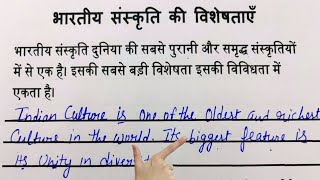 भारतीय संस्कृति की विशेषताएँ
भारतीय संस्कृति दुनिया की सबसे पुरानी और समृद्ध संस्कृतियों
में से एक है। इसकी सबसे बड़ी विशेषता इसकी विविधता में
एकता है।
Indian Culture is one of the oldest and richest
Culture in the world. Its biggest feature is
its unity in